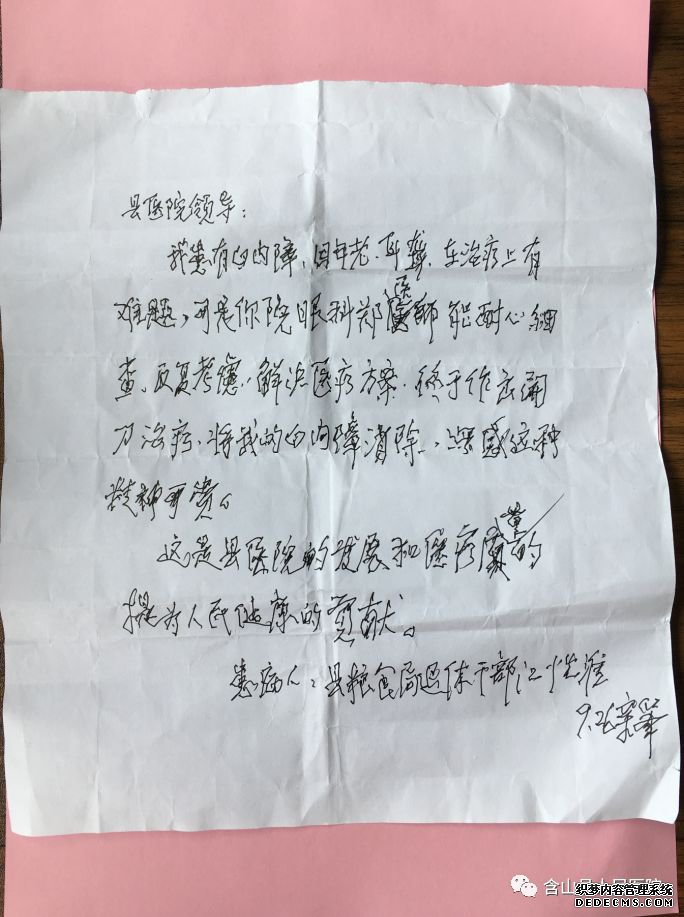 县医院领导:
我患有白内障,因年老、耳聋,在治疗上有
难题,可是你院眼科郑医师能耐心细
查、反复考虑,解决医疗方案,终于作出开
刀治疗,将我的白内障消除,深感这种
精神可贵。
这是县医院的发展和医疗质量的
提为人民健康的贡献。
患病人:县粮食局退休干部江
9.26
含山县人民医院
织梦内容管理系统
DEDECMS.COM